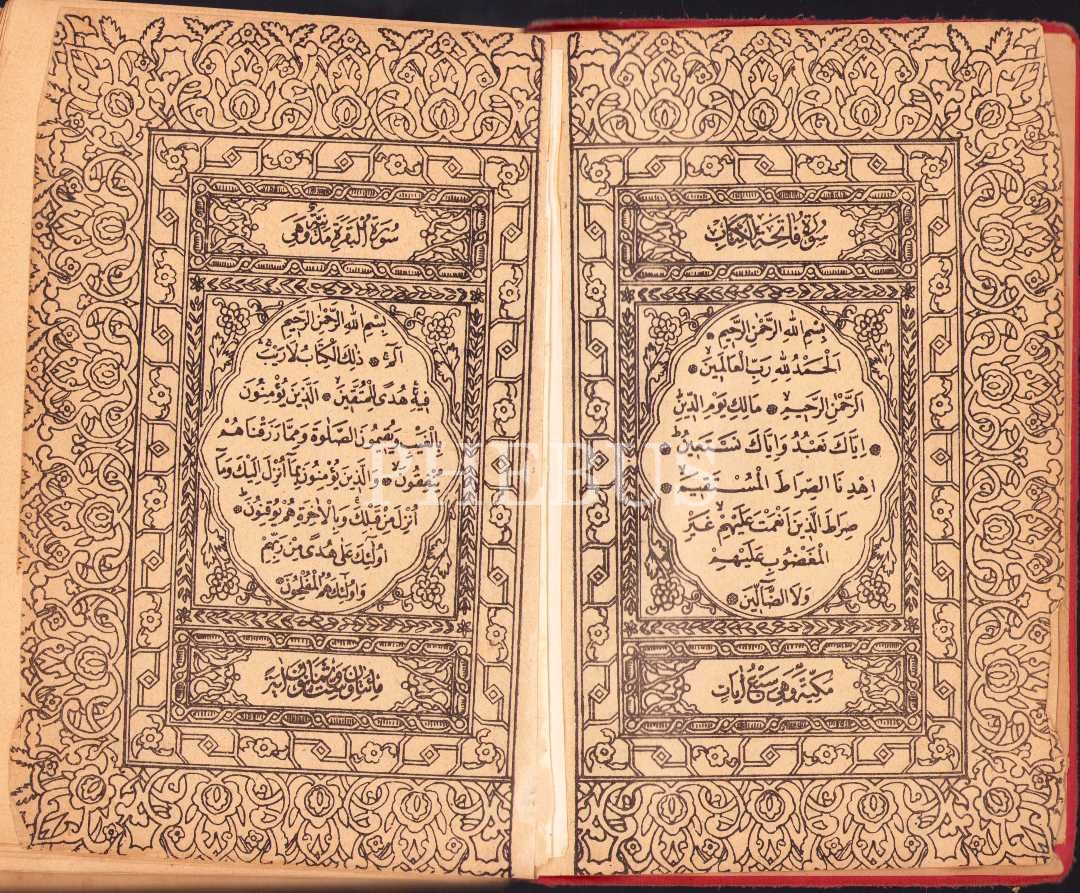 سورة فاتحة الكتاب
بسم الله الرحمن الرحيم
الحمد لله رب العالمين
الرحمن الرحيم مالك يوم الدين
اياك نعبد واياك نستعين
اهدنا الصراط المستقيم
صراط الذين انعمت عليهم غير
المغضوب عليهم
ولا الضالين
مكية وهي سبع آيات
سورة البقرة مدنية وهي
بسم الله الرحمن الرحيم
الم ذلك الكتاب لا ريب
فيه هدى للمتقين الذين يؤمنون
بالغيب ويقيمون الصلوة ومما رزقناهم
ينفقون والذين يؤمنون بما انزل اليك وما
انزل من قبلك وبالاخرة هم يوقنون
اولئك على هدى من ربهم
واولئك هم المفلحون
مائتان وست وثمانون آية
PHEBUS